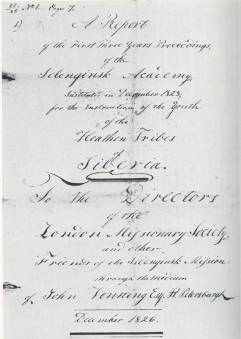 No 1. Page 7.
A Report
of the First Three Years Proceedings
of the
Selenginsk Academy
Instituted in December 1823,
for the Instruction of the Youth
of the
Heathen Tribes
of
Siberia.
To the Directors
of the
London Missionary Society
and other
Friends of the Selenginsk Mission
through the medium
of John Venning Esq. St. Petersburgh
December 1826.